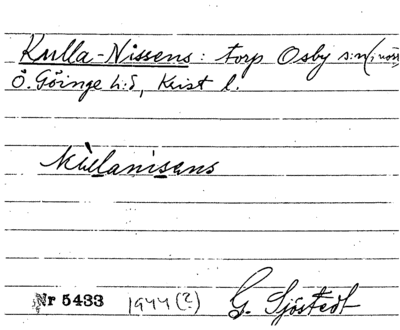 Kulla-Nissens: torp Osby s:n
Ö. Göinge h:d, Krist l.
kùlanisens
Nr 5433 1944 (?) G. Sjöstedt